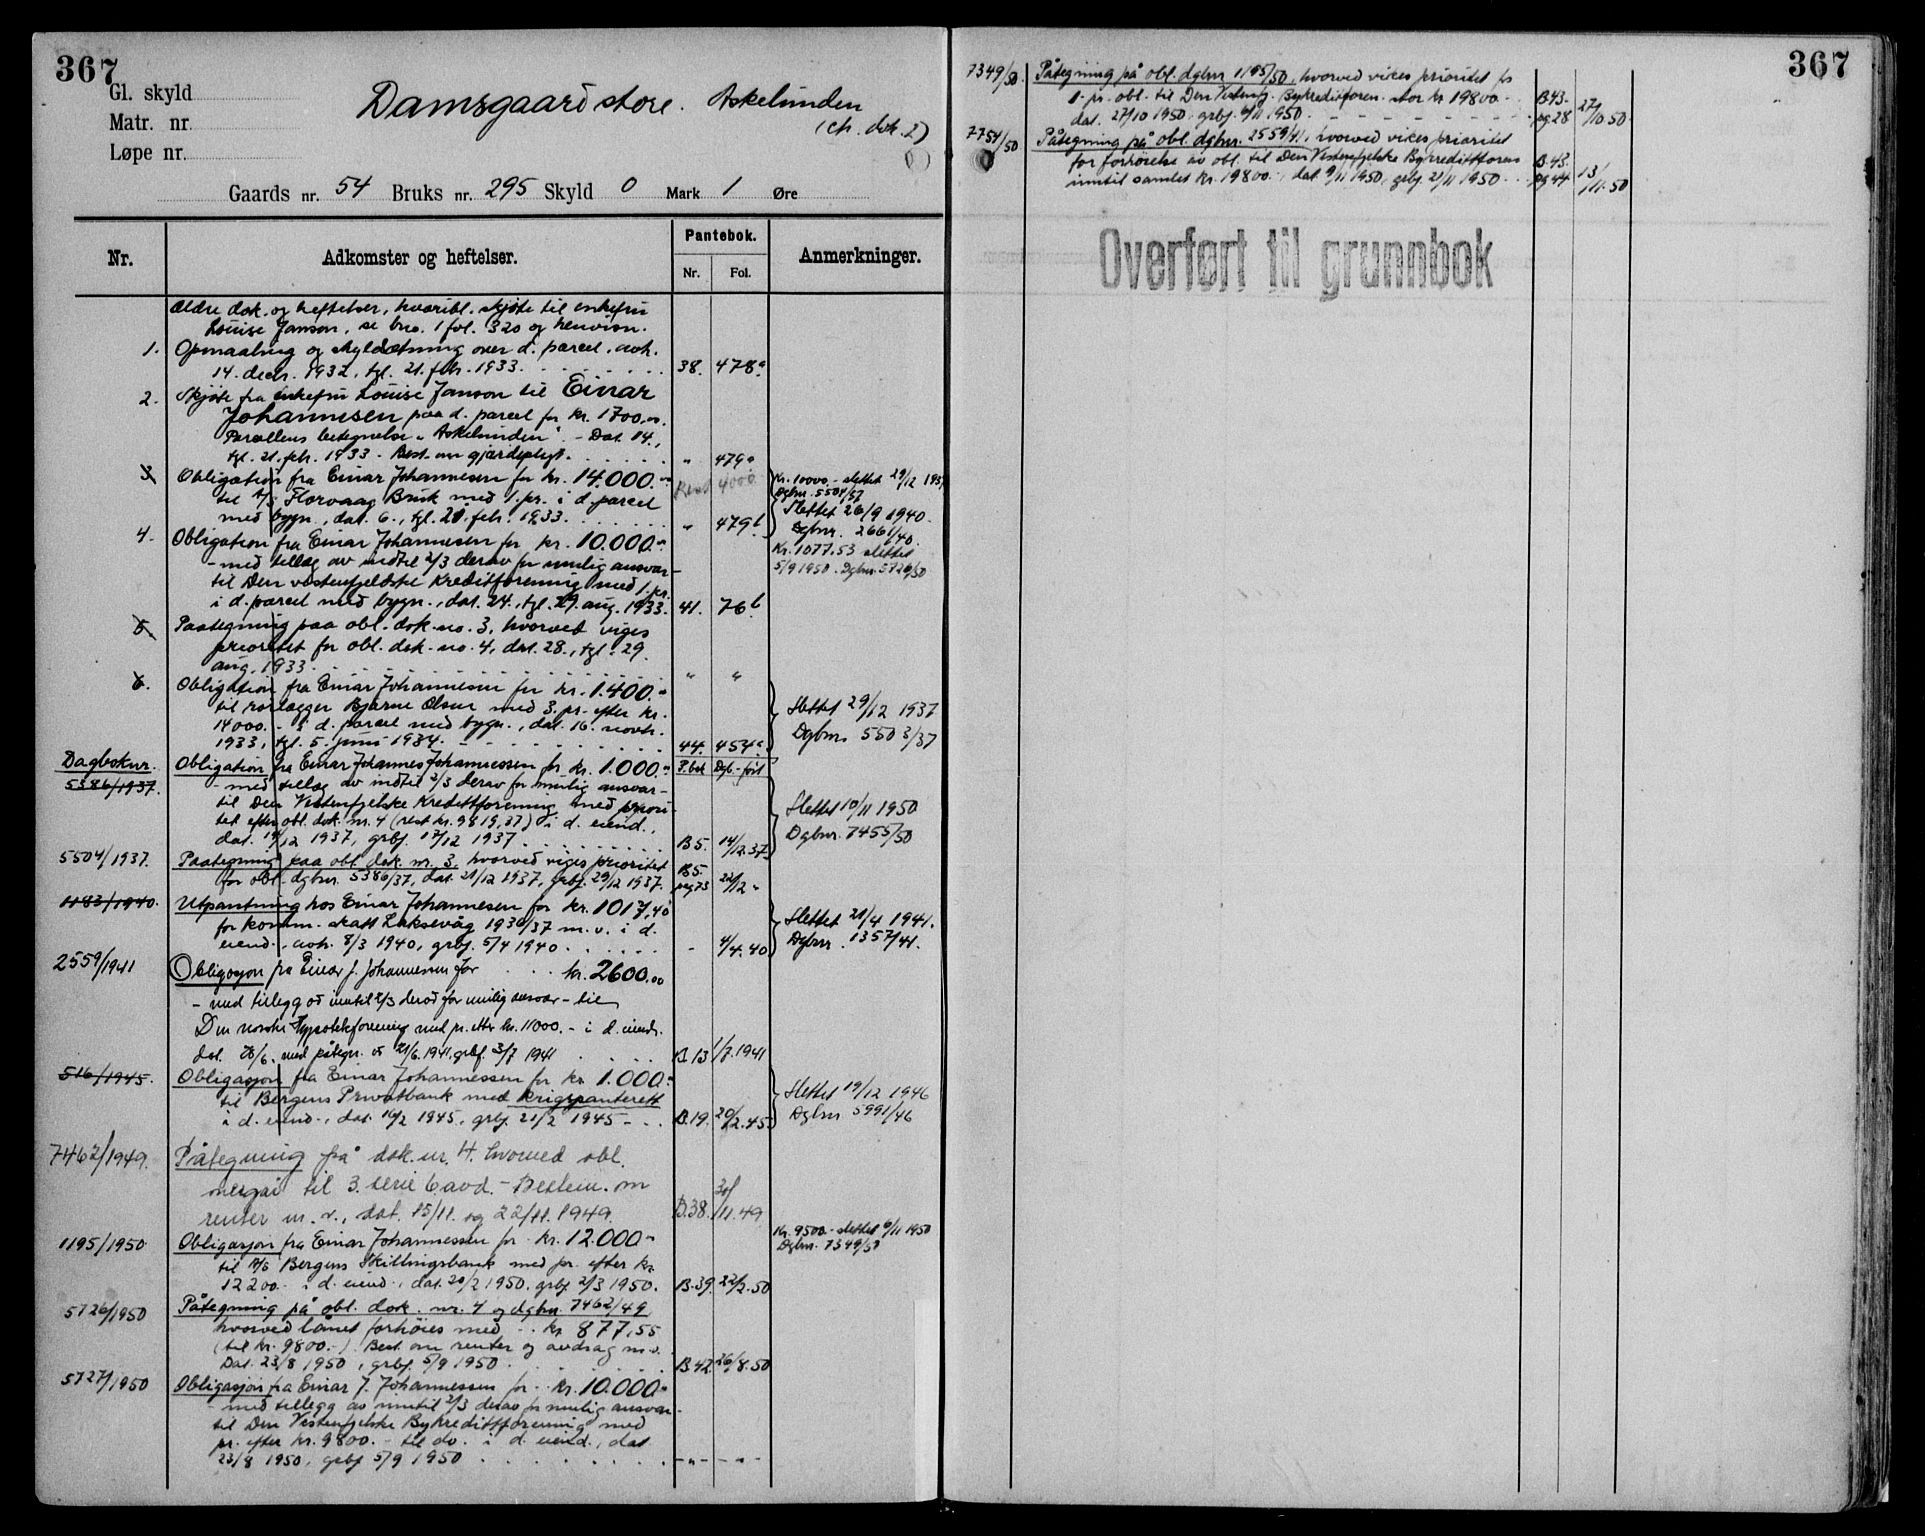 367
Gl. skyld
Matr. nr.
Løpe nr.
Damsgaard store. Askelunden
(cfr. dok. 2)
Gaards nr. 54 Bruks nr. 295 Skyld 0 Mark 1 Øre
Nr. Adkomster og heftelser. Pantebok. Nr. Fol. Anmerkninger.
Ældre dok. og heftelser, hvoribl. skjøte til enkefru
Louise Janson, se bno. 1 fol. 320 og henvisn.
1. Opmaaling og skyldsætning over d. parcel, avh.
14. decbr. 1932, tgl. 21. febr. 1933. 38. 478a
2. Skjøte fra enkefru Louise Janson til Einar
Johannesen paa d. parcel for kr. 1700,00.
Parcellens betegnelse "Askelunden". - Dat. 14.,
tgl. 21. febr. 1933. - Best. om gjærdepligt. " 479a
3. Obligation fra Einar Johannesen for kr. 14.000.- Rest 4000. Kr. 10000.- slettet 29/12 1937
til A/S Florvaag Bruk med 1. pr. i d. parcel Dgbnr. 5504/37
med bygn., dat. 6., tgl. 21. febr. 1933. " 479b Slettet 26/9 1940.
Dgbnr. 2661/40.
4. Obligation fra Einar Johannesen for kr. 10.000.- Kr. 1077.53 slettet
- med tillæg av indtil 2/3 derav for mulig ansvar - 5/9 1950. Dgbnr. 5726/50
til Den vestenfjeldske Kreditforening med 1. pr.
i d. parcel med bygn., dat. 24., tgl. 29. aug. 1933. 41. 76b
5. Paategning paa obl. dok. no. 3, hvorved viges
prioritet for obl. dok. no. 4, dat. 28., tgl. 29.
aug. 1933. " "
6. Obligation fra Einar Johannesen for kr. 1.400.-
til rørlægger Bjarne Olsen med 3. pr. efter kr. Slettet 29/12 1937
14000.- i d. parcel med bygn., dat. 16. novbr. Dgbnr. 5503/37
1933, tgl. 5. juni 1934. 44. 454a
Dagboknr. Obligation fra Einar Johannes Johannessen for kr. 1.000.- P.bok Dgb.-ført
5386/1937. - med tillæg av indtil 2/3 derav for mulig ansvar -
til Den Vestenfjelske Kreditforening med priori-
tet efter obl. dok. nr. 4 (rest kr. 9819,37) i d. eiend., Slettet 10/11 1950
dat. 14/12 1937, grbf. 17/12 1937. B 5. 14/12.37. Dgbnr. 7455/50
5504/1937. Paategning paa obl. dok. nr. 3, hvorved viges prioritet B 5.
for obl. dgbnr. 5386/37, dat. 21/12 1937, grbf. 29/12 1937. pg 73 22/12 "
1183/1940. Utpantning hos Einar Johannesen for kr. 1017,40
for komm. skatt Laksevåg 1936/37 m.v. i d. Slettet 21/4 1941.
eiend., avh. 8/3 1940, grbf. 5/4 1940. - 4/4.40 Dgbnr. 1357/41.
2559/1941 Obligasjon fra Einar J. Johannesen for kr. 2600.00
- med tillegg av inntil 2/3 derav for mulig ansvar - til
Den norske Hypotekforening med pr. etter kr. 11000.- i d. eiend.
dat. 26/6. med påtegn. av 21/6.1941, grbf. 3/7 1941 B. 13 1/7.1941
516/1945. Obligasjon fra Einar Johannessen for kr. 1.000.-
til Bergens Privatbank med krigspanterett Slettet 19/12 1946
i d. eiend., dat. 16/2 1945, grbf. 21/2 1945 B. 19. 20/2.45 Dgbnr. 5991/46
7462/1949. Påtegning på dok. nr. 4. hvorved obl.
overgår til 3. serie 6 avd. - Bestem. om
renter m.v., dat. 15/11. og 22/11. 1949. B. 38. 30/11.49
1195/1950 Obligasjon fra Einar Johannessen for kr. 12.000.- Kr. 9500.- slettet 6/11 1950
til A/S Bergens Skillingsbank med pr. efter kr. Dgbnr. 7349/50
12200.- i d. eiend., dat. 20/2 1950, grbf. 2/3 1950. B. 39. 22/2.50
5726/1950 Påtegning på obl. dok. nr. 4 og dgbnr. 7462/49,
hvorved lånet forhøies med kr. 877,55
(til kr. 9800.-). Best. om renter og avdrag m.v.
Dat. 23/8 1950, grbf. 5/9 1950. B. 42. 26/8.50
5727/1950 Obligasjon fra Einar J. Johannessen for kr. 10.000.-
- med tillegg av inntil 2/3 derav for mulig ansvar -
til Den Vestenfjelske Bykredittforening med
pr. efter kr. 9800.- til do. i d. eiend., dat.
23/8 1950, grbf. 5/9 1950 - " - - " -
367
7349/50. Påtegning på obl. dgbnr. 1195/50, hvorved vikes prioritet for
1. pr. obl. til Den Vestenfj. Bykredittforen. stor kr. 19800.- B 43.
dat. 27/10 1950, grbf. 6/11 1950. pg 28 27/10 50
7754/50 Påtegning på obl. dgbnr. 2559/41, hvorved vikes prioritet
for forhøielse av obl. til Den Vestenfjelske Bykredittforen. B. 43.
inntil samlet kr. 19800.-, dat. 9/11 1950, grbf. 21/11 1950 pg 44 13/11.50
Overført til grunnbok